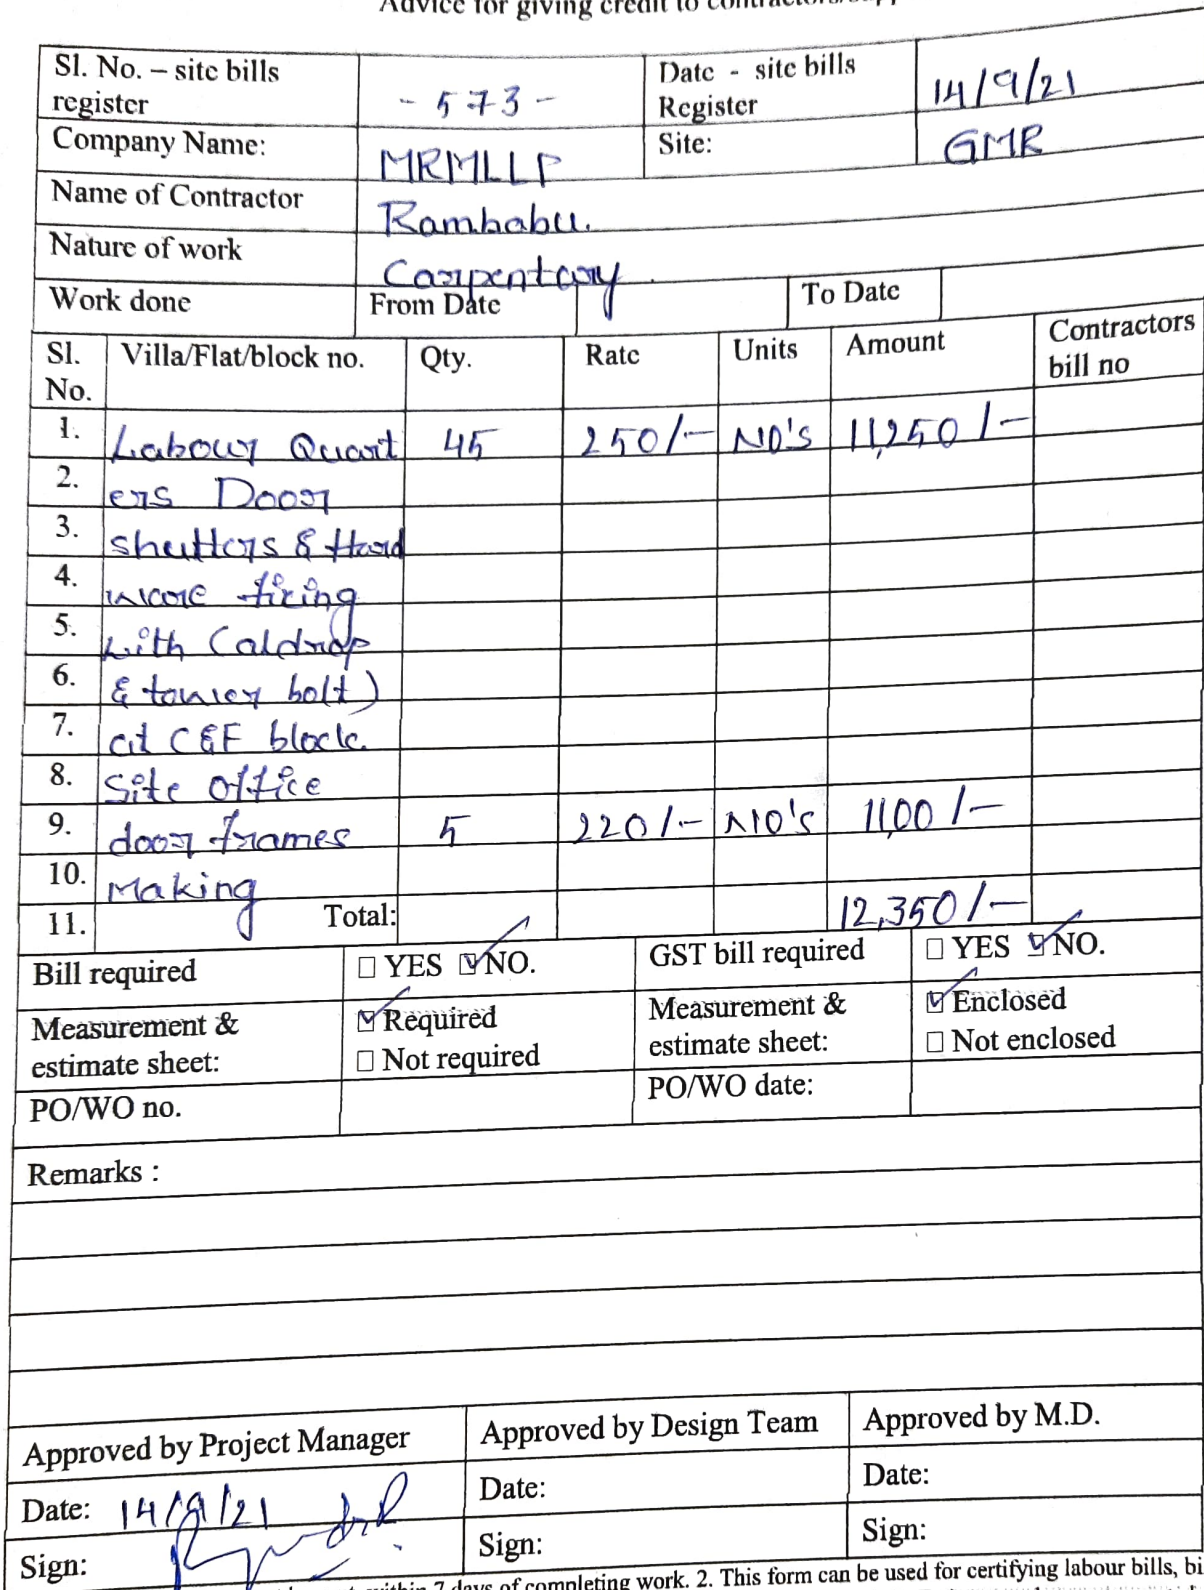 Advice for giving credit to contractors/
Sl. No. – site bills register - 573 - Date - site bills Register 14/9/21
Company Name: MRMLLP Site: GMR
Name of Contractor Rambabu.
Nature of work Carpentary
Work done From Date To Date
Sl. No. Villa/Flat/block no. Qty. Rate Units Amount Contractors bill no
1. Labour Quart 45 250/- NO's 11,250/-
2. ers Door
3. shutters & Hard
4. ware fixing
5. with Caldrop
6. & tower bolt)
7. at C&F block.
8. Site office
9. door frames 5 220/- NO's 1100/-
10. Making
11. Total: 12,350/-
Bill required ☐ YES ☑ NO. GST bill required ☐ YES ☑ NO.
Measurement & estimate sheet: ☑ Required ☐ Not required Measurement & estimate sheet: ☑ Enclosed ☐ Not enclosed
PO/WO no. PO/WO date:
Remarks :
Approved by Project Manager Approved by Design Team Approved by M.D.
Date: 14/9/21 Date: Date:
Sign: Sign: Sign:
within 7 days of completing work. 2. This form can be used for certifying labour bills, bi